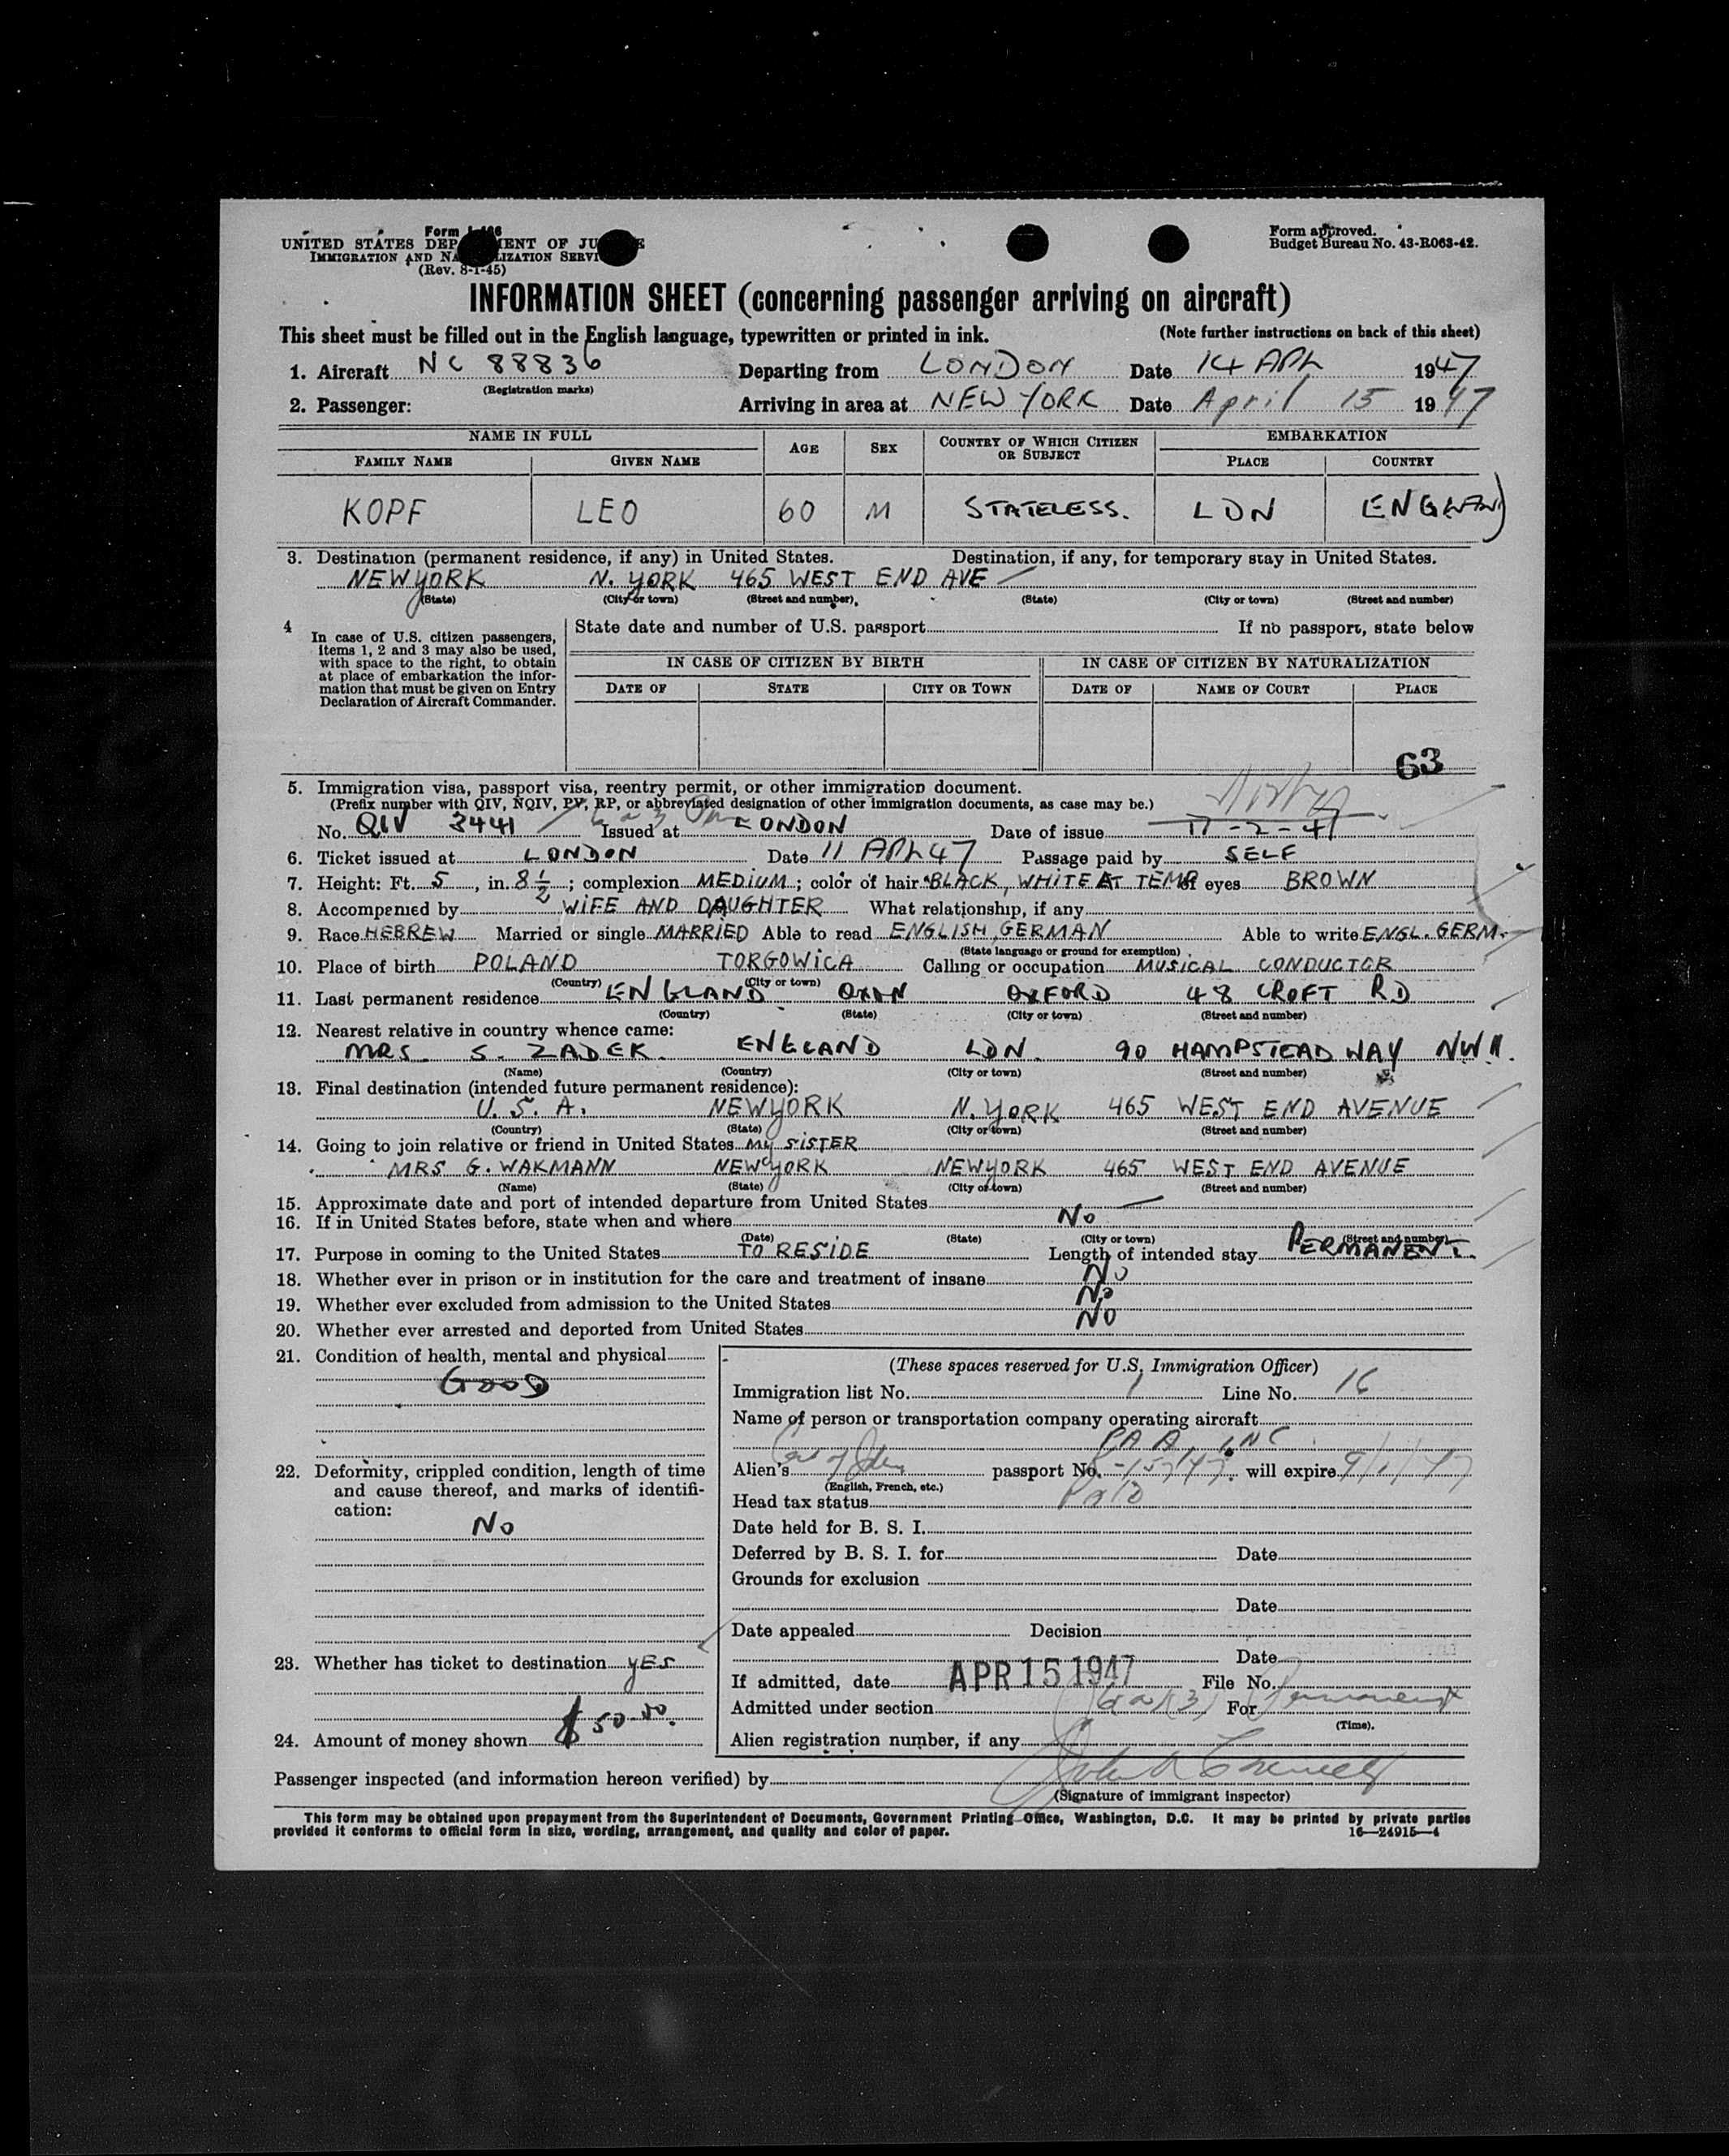 Form I-466
UNITED STATES DEPARTMENT OF JUSTICE
IMMIGRATION AND NATURALIZATION SERVICE
(Rev. 8-1-45)
Form approved.
Budget Bureau No. 43-R063-42.
INFORMATION SHEET (concerning passenger arriving on aircraft)
This sheet must be filled out in the English language, typewritten or printed in ink. (Note further instructions on back of this sheet)
1. Aircraft NC 88836 Departing from LONDON Date 14 APR 1947
(Registration marks)
2. Passenger: Arriving in area at NEW YORK Date April 15 1947
NAME IN FULL AGE SEX COUNTRY OF WHICH CITIZEN OR SUBJECT EMBARKATION
FAMILY NAME GIVEN NAME PLACE COUNTRY
KOPF LEO 60 M STATELESS. LDN ENGLAND
3. Destination (permanent residence, if any) in United States. Destination, if any, for temporary stay in United States.
NEW YORK N. YORK 465 WEST END AVE
(State) (City or town) (Street and number) (State) (City or town) (Street and number)
4 In case of U.S. citizen passengers, items 1, 2 and 3 may also be used, with space to the right, to obtain at place of embarkation the information that must be given on Entry Declaration of Aircraft Commander.
State date and number of U.S. passport If no passport, state below
IN CASE OF CITIZEN BY BIRTH IN CASE OF CITIZEN BY NATURALIZATION
DATE OF STATE CITY OR TOWN DATE OF NAME OF COURT PLACE
63
5. Immigration visa, passport visa, reentry permit, or other immigration document.
(Prefix number with QIV, NQIV, PV, RP, or abbreviated designation of other immigration documents, as case may be.)
No. QIV 3441 Issued at LONDON Date of issue 17-2-47
6. Ticket issued at LONDON Date 11 APR 47 Passage paid by SELF
7. Height: Ft. 5, in. 8 1/2; complexion MEDIUM; color of hair BLACK, WHITE AT TEMP of eyes BROWN
8. Accompanied by WIFE AND DAUGHTER What relationship, if any
9. Race HEBREW Married or single MARRIED Able to read ENGLISH, GERMAN Able to write ENGL. GERM.
(State language or ground for exemption)
10. Place of birth POLAND TORGOWICA Calling or occupation MUSICAL CONDUCTOR
(Country) (City or town)
11. Last permanent residence ENGLAND OXON OXFORD 48 CROFT RD
(Country) (State) (City or town) (Street and number)
12. Nearest relative in country whence came:
MRS. S. ZADEK. ENGLAND LDN. 90 HAMPSTEAD WAY NW11.
(Name) (Country) (City or town) (Street and number)
13. Final destination (intended future permanent residence):
U. S. A. NEWYORK N. YORK 465 WEST END AVENUE
(Country) (State) (City or town) (Street and number)
14. Going to join relative or friend in United States MY SISTER
MRS G. WAKMANN NEWYORK NEWYORK 465 WEST END AVENUE
(Name) (State) (City or town) (Street and number)
15. Approximate date and port of intended departure from United States —
16. If in United States before, state when and where No
(Date) (State) (City or town) (Street and number)
17. Purpose in coming to the United States TO RESIDE Length of intended stay PERMANENT.
18. Whether ever in prison or in institution for the care and treatment of insane No
19. Whether ever excluded from admission to the United States No
20. Whether ever arrested and deported from United States NO
21. Condition of health, mental and physical
GOOD
22. Deformity, crippled condition, length of time and cause thereof, and marks of identification:
No
23. Whether has ticket to destination YES
24. Amount of money shown $50.00.
(These spaces reserved for U.S. Immigration Officer)
Immigration list No. 1 Line No. 16
Name of person or transportation company operating aircraft
PAA, INC
Alien's passport No. will expire
(English, French, etc.)
Head tax status Paid
Date held for B. S. I.
Deferred by B. S. I. for Date
Grounds for exclusion
Date
Date appealed Decision
Date
If admitted, date APR 15 1947 File No.
Admitted under section 6a(3) For Permanent
(Time).
Alien registration number, if any
Passenger inspected (and information hereon verified) by
(Signature of immigrant inspector)
This form may be obtained upon prepayment from the Superintendent of Documents, Government Printing Office, Washington, D.C. It may be printed by private parties
provided it conforms to official form in size, wording, arrangement, and quality and color of paper. 16—24915—4